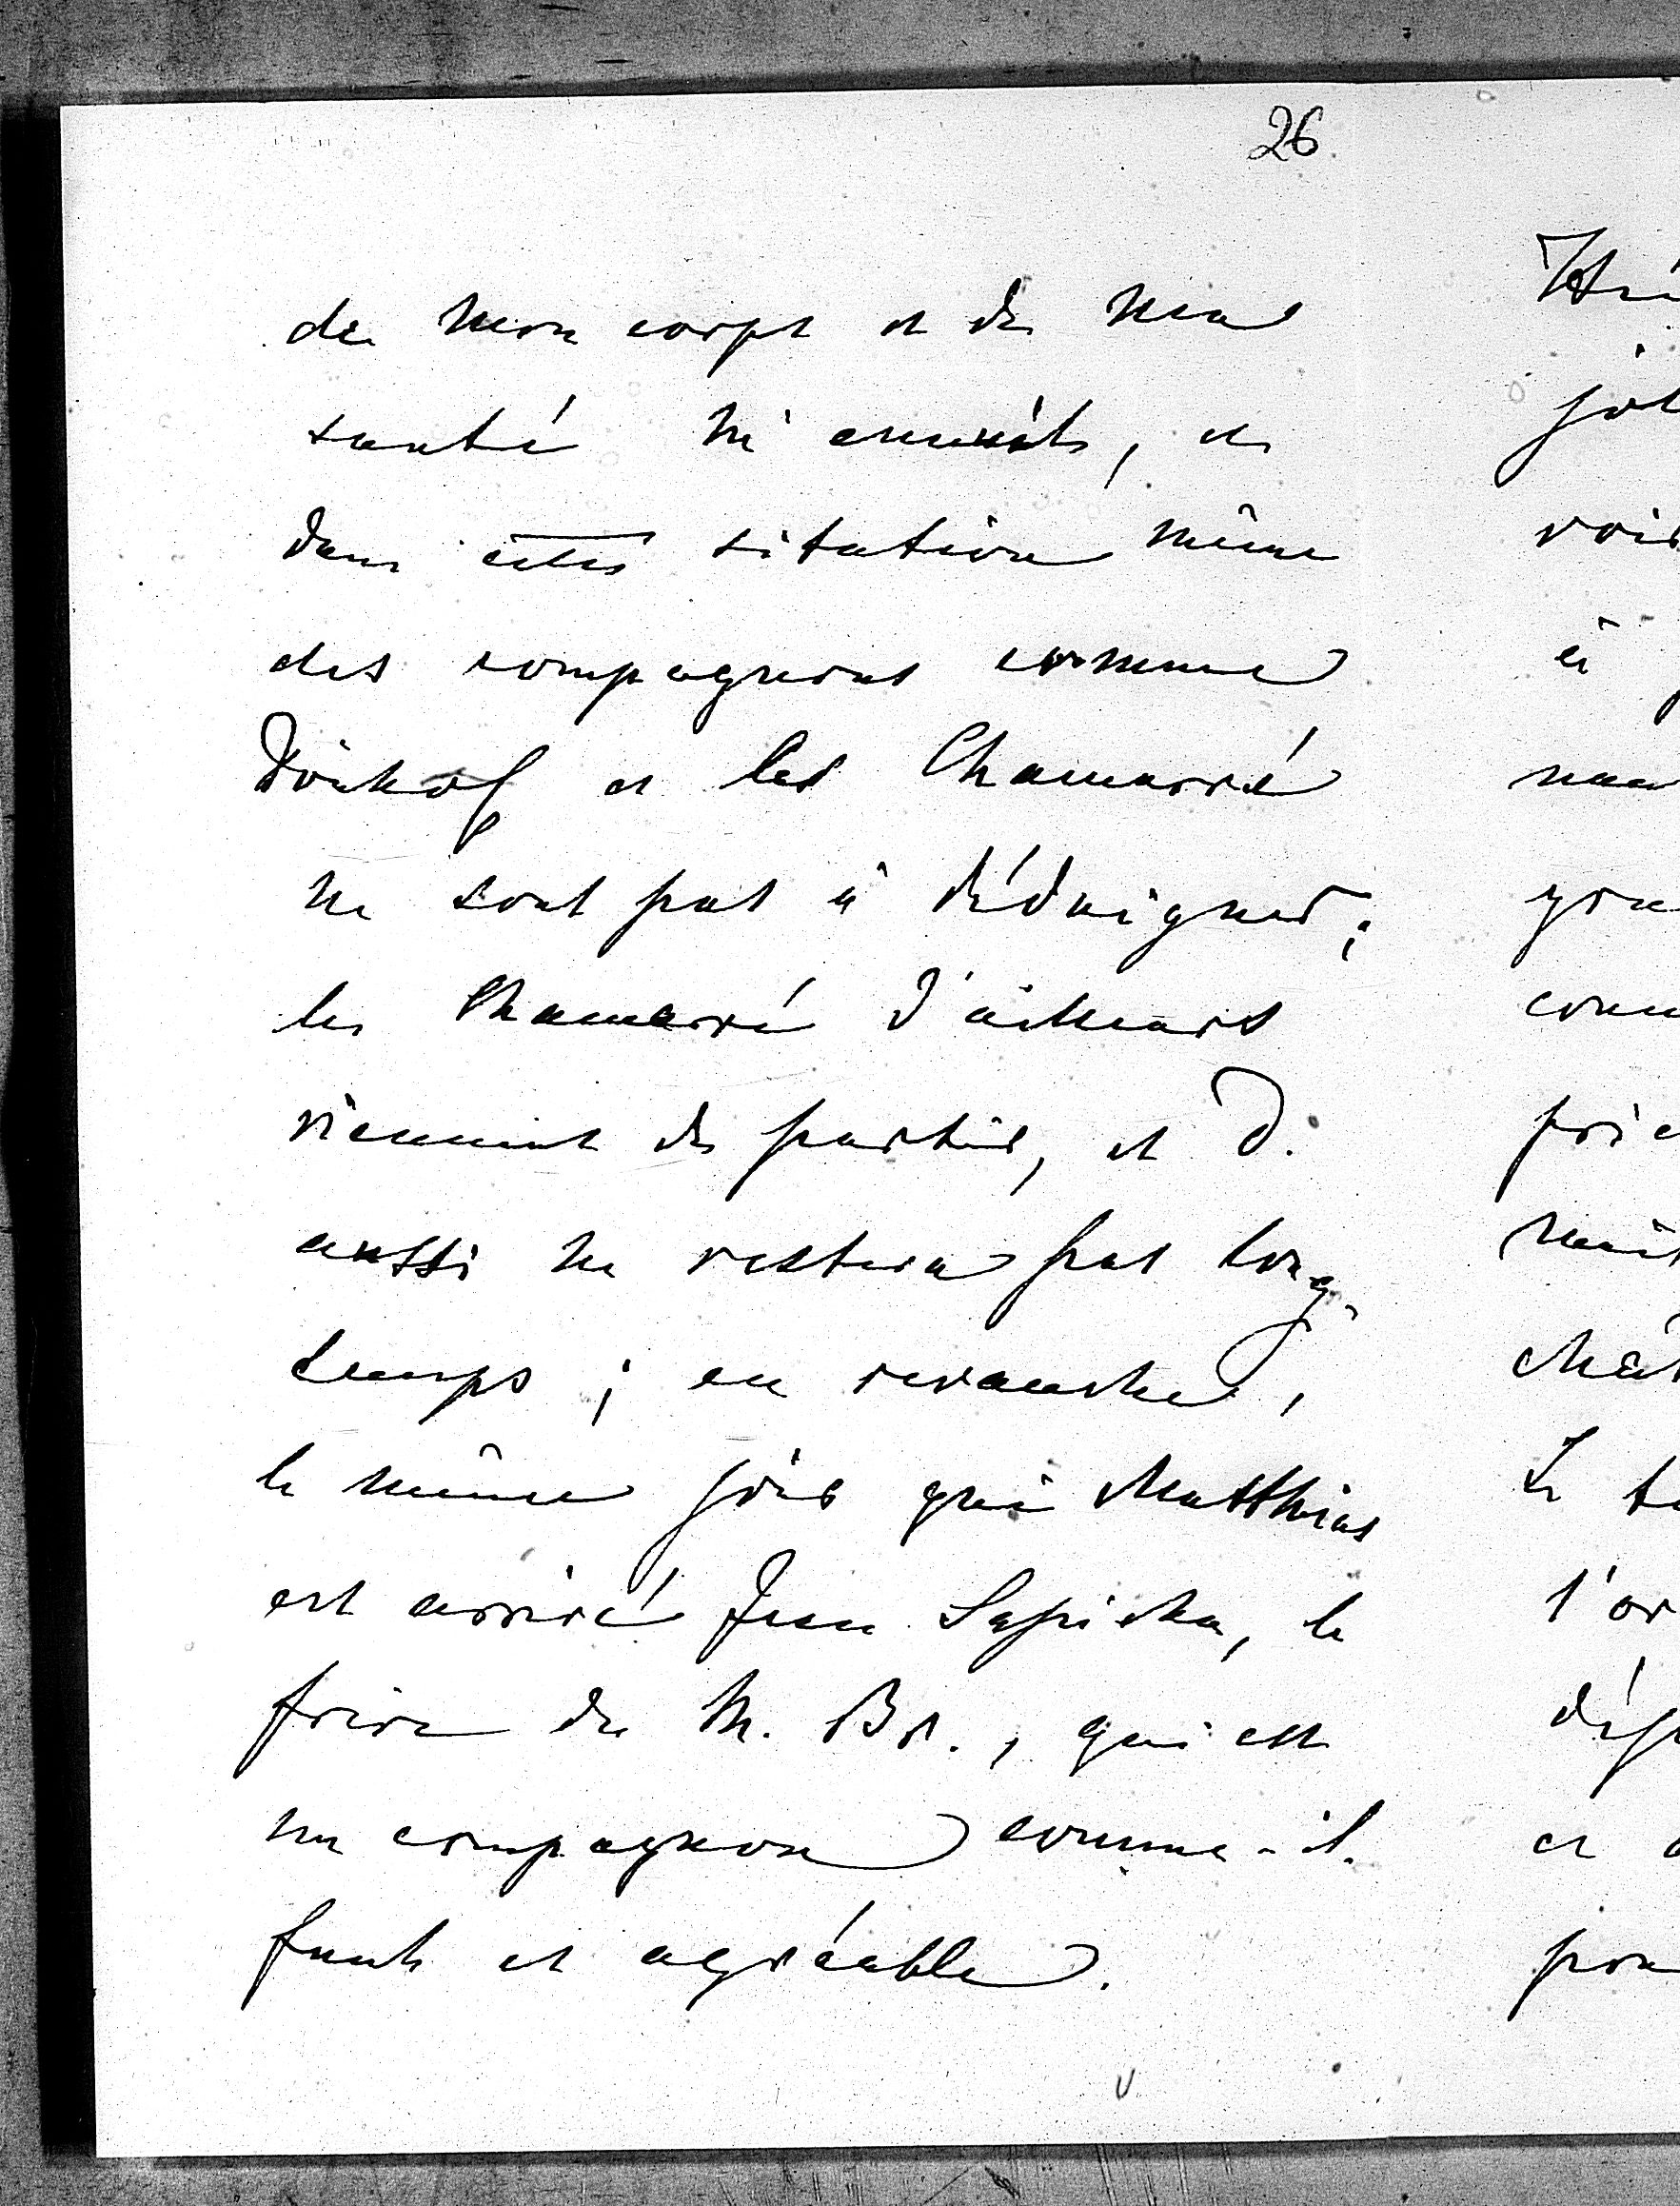 26
de mon corps et de ma
santé m'ennuait, et
dans cette sitation même
des compagnons comme
et les Chamarré
ne sont pas à dédaigner;
les Chamarré d'ailleurs
viennent de partir, et D.
aussi ne restera pas long-
temps; en revanche,
le même soir que Matthias
est arrivé Jean Sapieha, le
frère de M. Br., qui est
un compagnon comme-il-
faut et agréable.